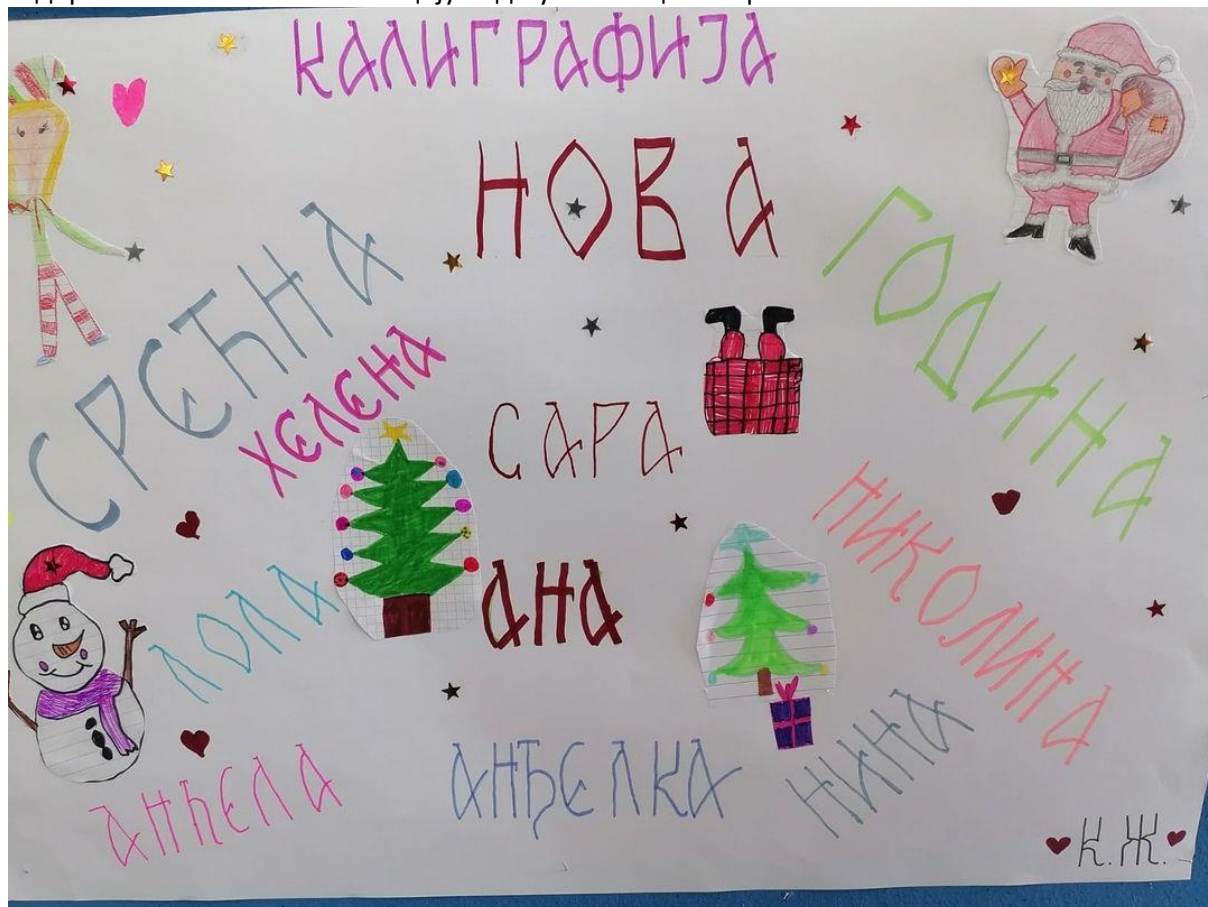 КАЛИГРАФИЈА
СРЕЋНА
НОВА
ГОДИНА
ХЕЛЕНА
САРА
НИКОЛИНА
ЛОЛА
АНА
АНЂЕЛА
АНЂЕЛКА
НИНА
К.Ж.